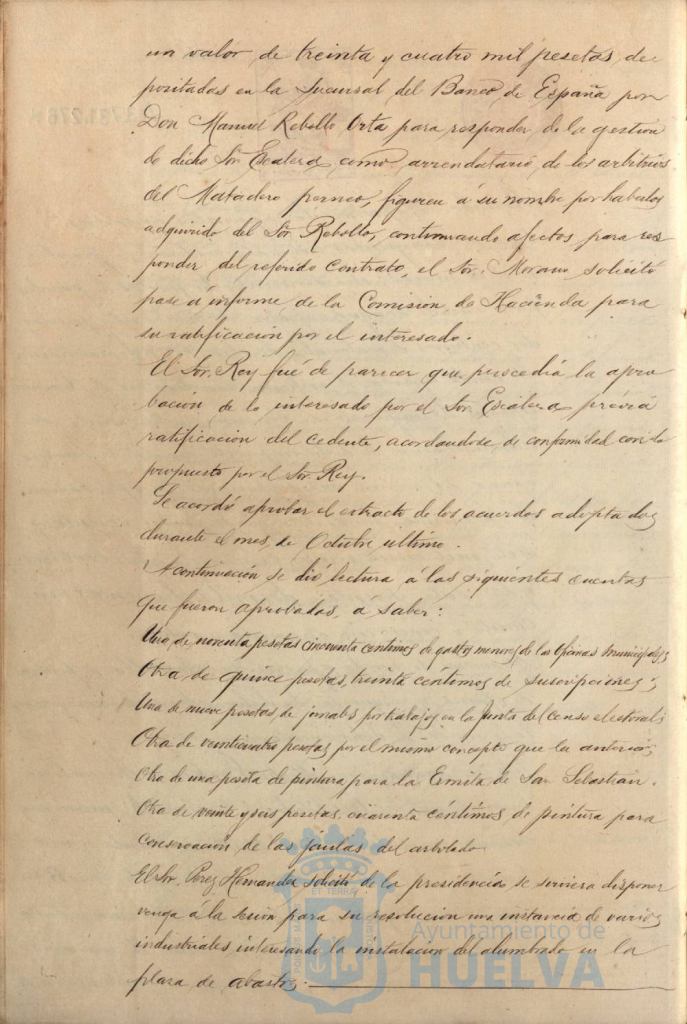 un valor de treinta y cuatro mil pesetas, de
positadas en la Sucursal del Banco de España por
Don Manuel Rebollo Orta para responder de la gestion
de dicho Sor. Escalera como arrendatario de los arbitrios
del Matadero porneo, figuren á su nombre por haberlos
adquirido del Sor. Rebollo, continuando afectos para res
ponder del referido contrato, el Sor. Morano solicitó
pase á informe de la Comision de Hacienda para
su ratificacion por el interesado.
El Sor. Rey fué de parecer que procedia la apro
bacion de lo interesado por el Sor. Escalera prévia
ratificacion del cedente, acordandose de conformidad con lo
propuesto por el Sor. Rey.
Se acordó aprobar el extracto de los acuerdos adoptados
durante el mes de Octubre ultimo.
A continuación se dió lectura á las siguientes cuentas
que fueron aprobadas, á saber:
Una de noventa pesetas cincuenta centimos de gastos menores de las Oficinas municipales;
Otra de quince pesetas, treinta céntimos de suscripciones;
Una de nueve pesetas, de jornales por trabajos en la Junta del censo electoral;
Otra de veinticuatro pesetas por el mismo concepto que la anterior;
Otra de una peseta de pintura para la Ermita de San Sebastian.
Otra de veinte y seis pesetas, cuarenta céntimos de pintura para
conservación de las jaulas del arbolado.
El Sor. Perez Hernandez solicitó de la presidencia se sirviera disponer
venga á la sesión para su resolucion una instancia de varios
industriales interesando la instalacion del alumbrado en la
plaza de abastos.
Ayuntamiento de
HUELVA